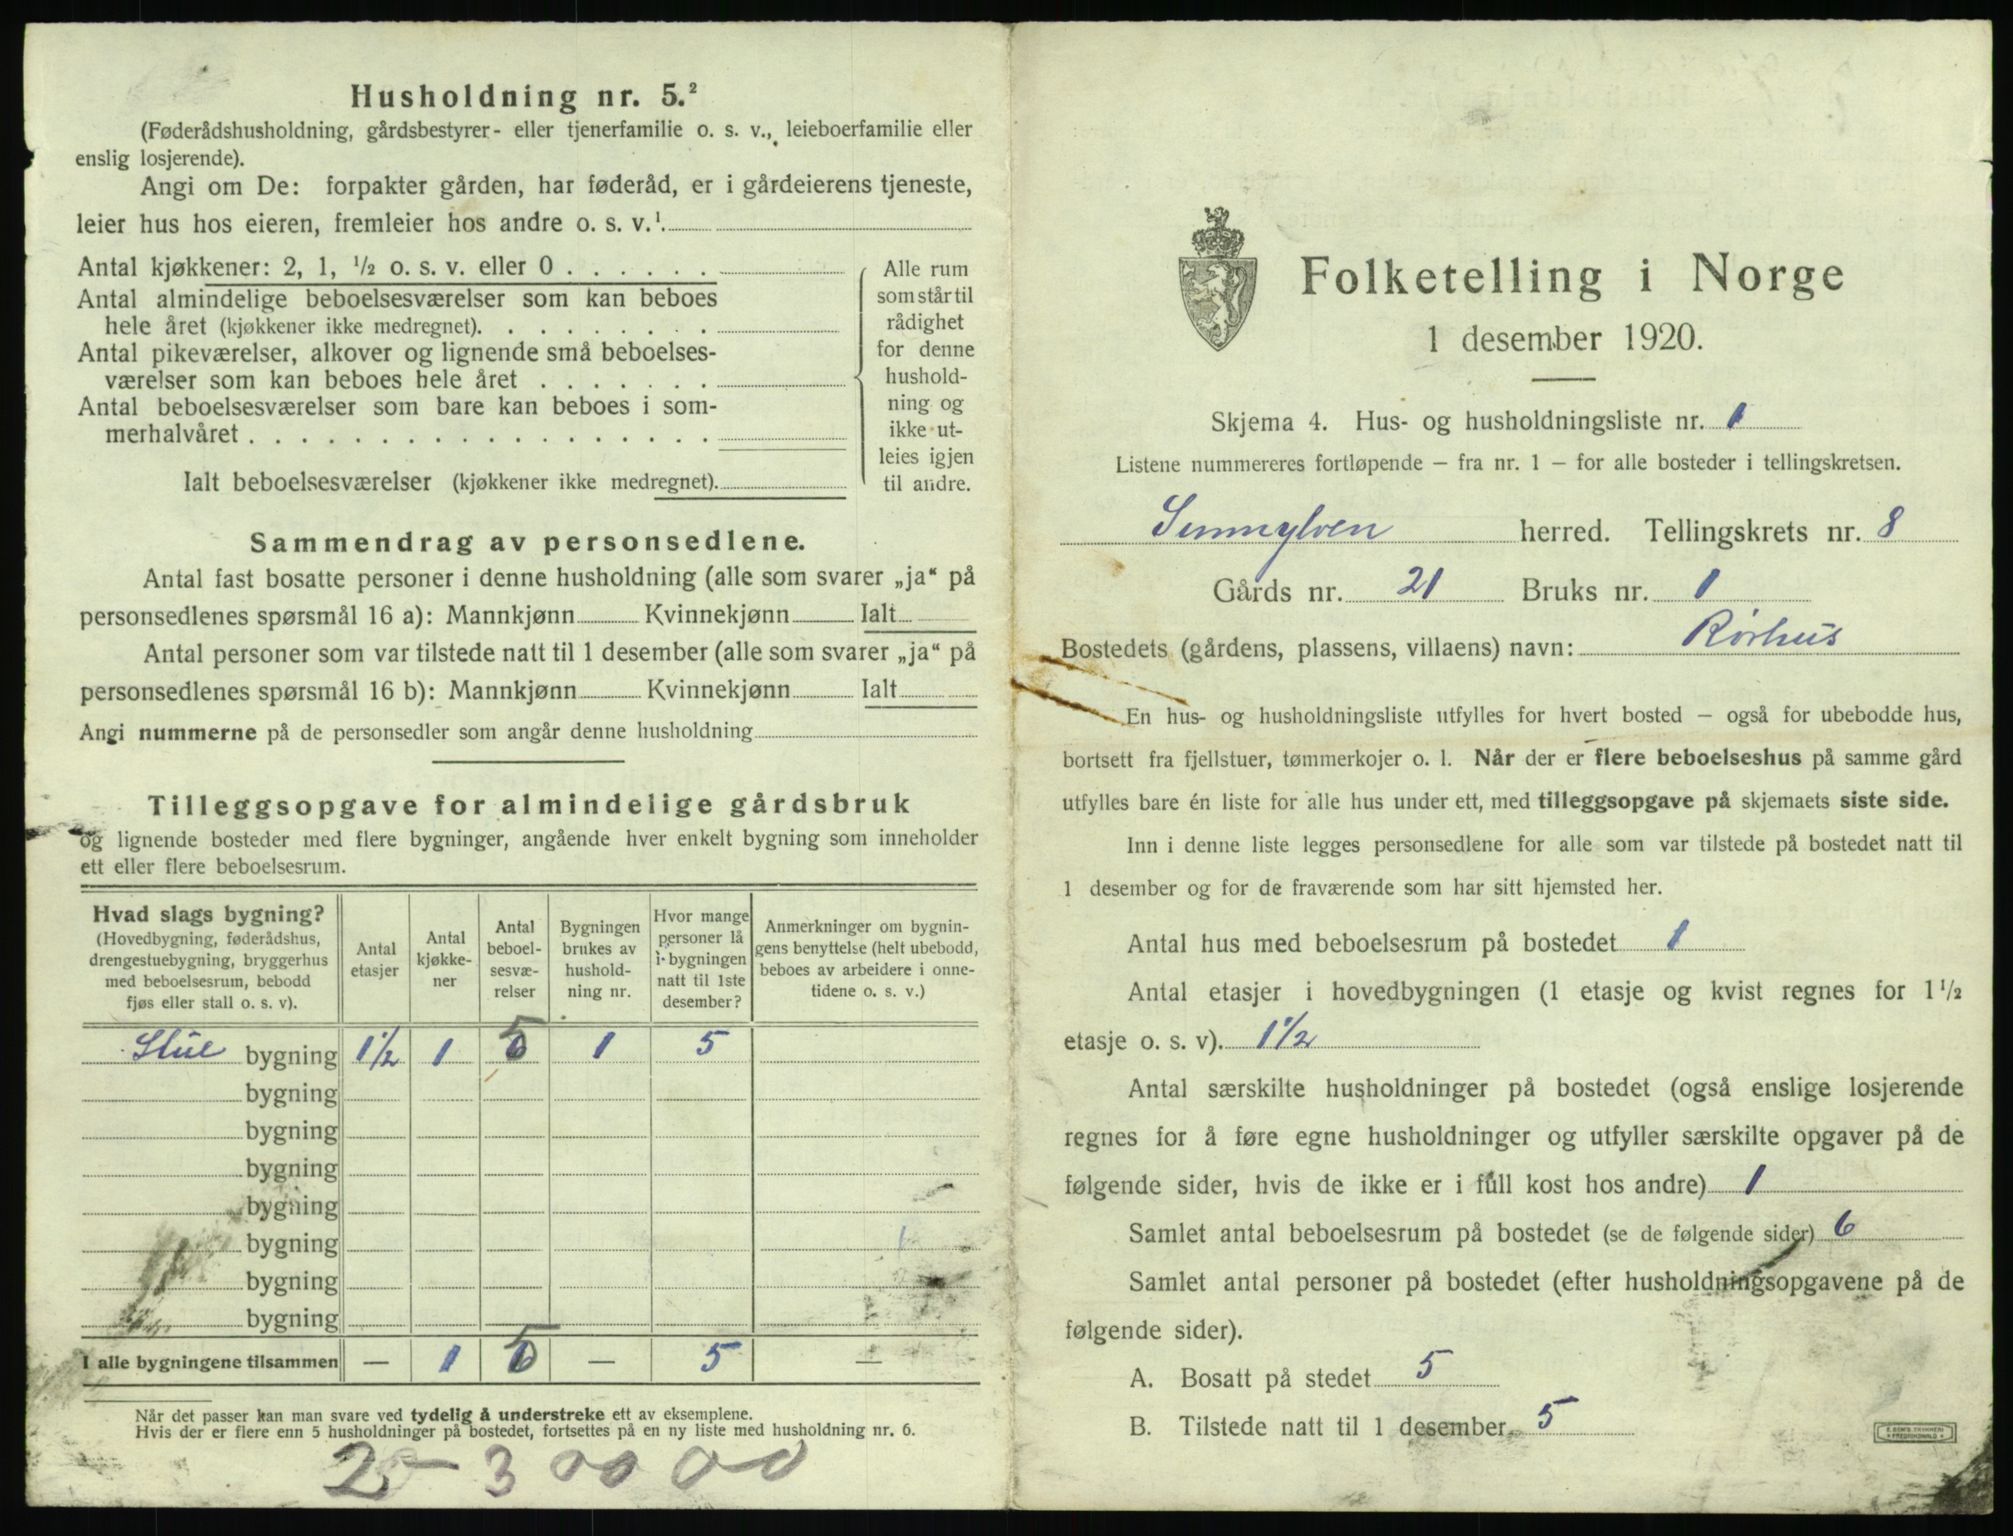 Husholdning nr. 5.²
(Føderådshusholdning, gårdsbestyrer- eller tjenerfamilie o. s. v., leieboerfamilie eller
enslig losjerende).
Angi om De: forpakter gården, har føderåd, er i gårdeierens tjeneste,
leier hus hos eieren, fremleier hos andre o. s. v.¹.
Antal kjøkkener: 2, 1, ½ o. s. v. eller 0 . . . . . .
Antal almindelige beboelsesværelser som kan beboes
hele året (kjøkkener ikke medregnet). . . . . . . . .
Antal pikeværelser, alkover og lignende små beboelses-
værelser som kan beboes hele året . . . . . . .
Antal beboelsesværelser som bare kan beboes i som-
merhalvåret . . . . . . . . . . . . . . . . . .
Ialt beboelsesværelser (kjøkkener ikke medregnet).
Alle rum
som står til
rådighet
for denne
hushold-
ning og
ikke ut-
leies igjen
til andre.
Sammendrag av personsedlene.
Antal fast bosatte personer i denne husholdning (alle som svarer „ja“ på
personsedlenes spørsmål 16 a): Mannkjønn Kvinnekjønn Ialt
Antal personer som var tilstede natt til 1 desember (alle som svarer „ja“ på
personsedlenes spørsmål 16 b): Mannkjønn Kvinnekjønn Ialt
Angi nummerne på de personsedler som angår denne husholdning
Tilleggsopgave for almindelige gårdsbruk
og lignende bosteder med flere bygninger, angående hver enkelt bygning som inneholder
ett eller flere beboelsesrum.
Hvad slags bygning?
(Hovedbygning, føderådshus,
drengestuebygning, bryggerhus
med beboelsesrum, bebodd
fjøs eller stall o. s. v).
Antal
etasjer
Antal
kjøkke-
ner
Antal
beboel-
sesvæ-
relser
Bygningen
brukes av
hushold-
ning nr.
Hvor mange
personer lå
i bygningen
natt til 1ste
desember?
Anmerkninger om bygnin-
gens benyttelse (helt ubebodd,
beboes av arbeidere i onne-
tidene o. s. v.)
Stue bygning 1½ 1 5 1 5
bygning
bygning
bygning
bygning
bygning
bygning
bygning
I alle bygningene tilsammen — 1 5 — 5 —
Når det passer kan man svare ved tydelig å understreke ett av eksemplene.
Hvis der er flere enn 5 husholdninger på bostedet, fortsettes på en ny liste med husholdning nr. 6.
Folketelling i Norge
1 desember 1920.
Skjema 4. Hus- og husholdningsliste nr. 1
Listene nummereres fortløpende – fra nr. 1 – for alle bosteder i tellingskretsen.
Sunnylven herred. Tellingskrets nr. 8
Gårds nr. 21 Bruks nr. 1
Bostedets (gårdens, plassens, villaens) navn: Rørhus
En hus- og husholdningsliste utfylles for hvert bosted – også for ubebodde hus,
bortsett fra fjellstuer, tømmerkojer o. l. Når der er flere beboelseshus på samme gård
utfylles bare én liste for alle hus under ett, med tilleggsopgave på skjemaets siste side.
Inn i denne liste legges personsedlene for alle som var tilstede på bostedet natt til
1 desember og for de fraværende som har sitt hjemsted her.
Antal hus med beboelsesrum på bostedet 1
Antal etasjer i hovedbygningen (1 etasje og kvist regnes for 1½
etasje o. s. v). 1½
Antal særskilte husholdninger på bostedet (også enslige losjerende
regnes for å føre egne husholdninger og utfyller særskilte opgaver på de
følgende sider, hvis de ikke er i full kost hos andre) 1
Samlet antal beboelsesrum på bostedet (se de følgende sider) 6
Samlet antal personer på bostedet (efter husholdningsopgavene på de
følgende sider).
A. Bosatt på stedet 5
B. Tilstede natt til 1 desember 5